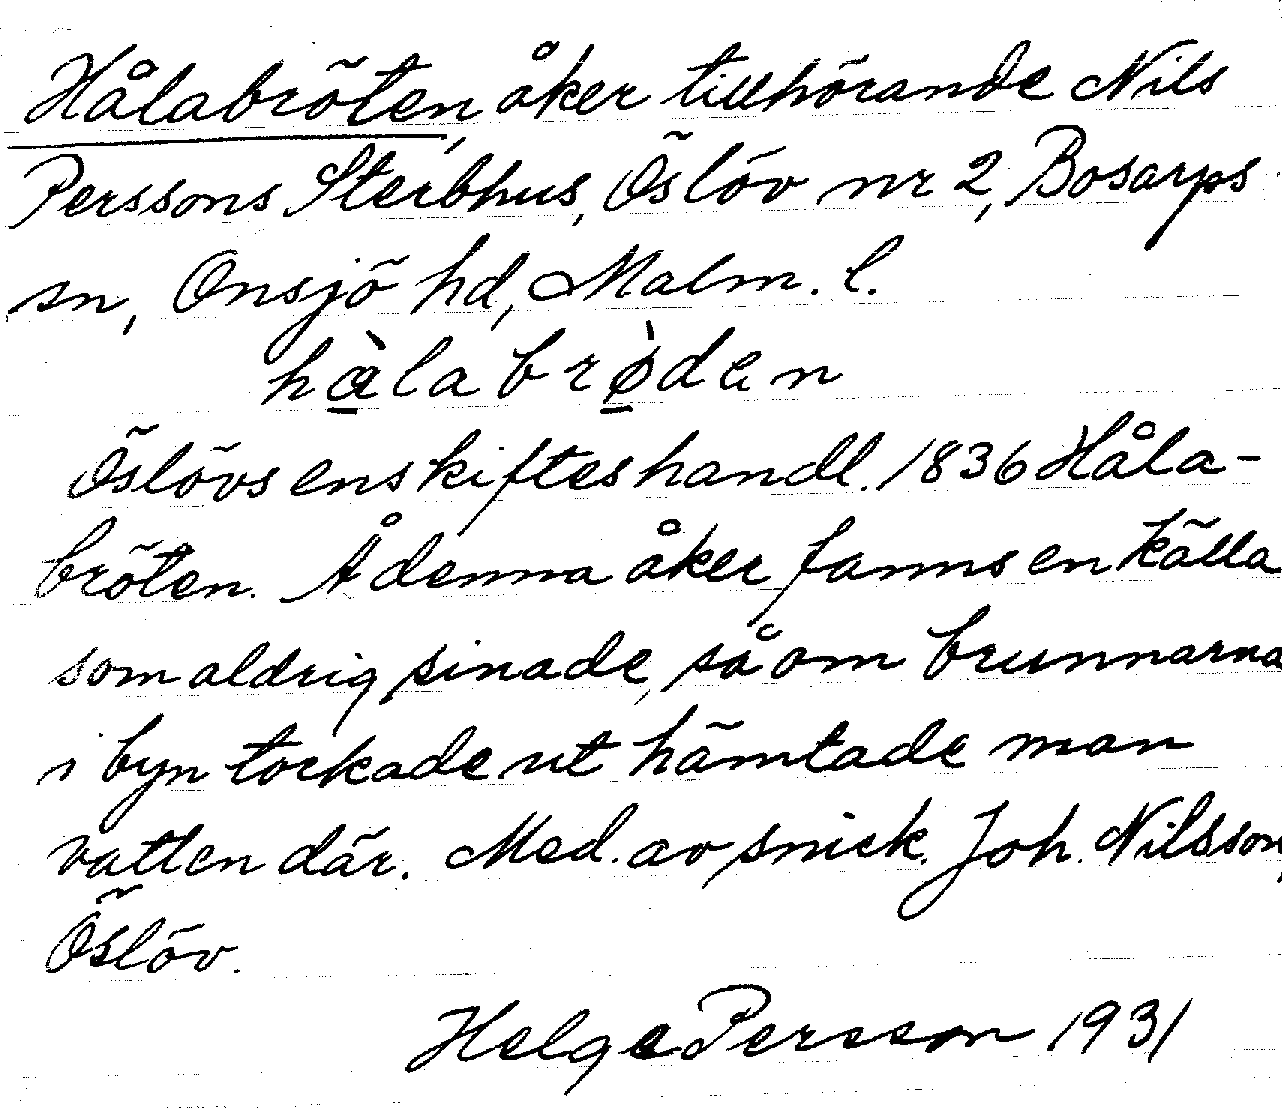 Hålabröten, åker tillhörande Nils
Perssons Sterbhus, Öslöv nr 2, Bosarps
sn, Onsjö hd, Malm. l.
hålabrøden
Öslövs enskifteshandl. 1836 Håla-
bröten. Å denna åker fanns en källa
som aldrig sinade, så om brunnarna
i byn torkade ut hämtade man
vatten där. Med. av snick. Joh. Nilsson,
Öslöv.
Helge Persson 1931